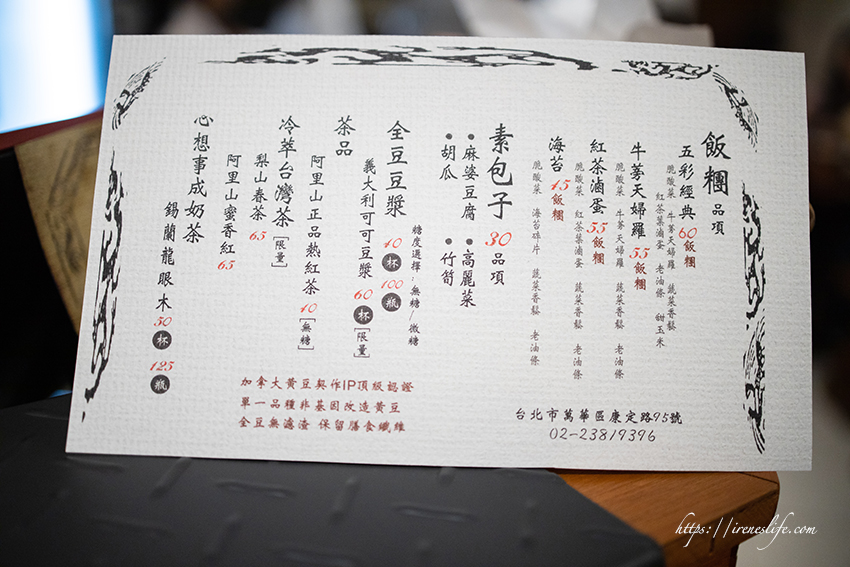 飯糰品項
五彩經典60飯糰
脆酸菜 牛蒡天婦羅 蔬菜香鬆
紅茶葉滷蛋 老油條 甜玉米
牛蒡天婦羅55飯糰
脆酸菜 牛蒡天婦羅 蔬菜香鬆 老油條
紅茶滷蛋55飯糰
脆酸菜 紅茶葉滷蛋 蔬菜香鬆 老油條
海苔45飯糰
脆酸菜 海苔碎片 蔬菜香鬆 老油條
素包子30品項
•麻婆豆腐 •高麗菜
•胡瓜 •竹筍
全豆豆漿40杯100瓶
糖度選擇:無糖/微糖
義大利可可豆漿60杯[限量]
茶品
阿里山正品熱紅茶40[無糖]
冷萃台灣茶[限量]
梨山春茶65
阿里山蜜香紅65
心想事成奶茶
錫蘭龍眼木50杯125瓶
加拿大黃豆契作IP頂級認證
單一品種非基因改造黃豆
全豆無濾渣 保留膳食纖維
台北市萬華區康定路95號
02-23819396
https://ireneslife.com